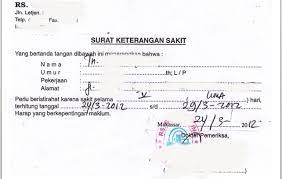 RS.
Jln. Letjen.
Telp. / Fax.
SURAT KETERANGAN SAKIT
Yang bertanda tangan dibawah ini menerangkan bahwa :
N a m a : Tn.
U m u r : th; L / P
Pekerjaan :
Alamat : Jl.
Perlu beristirahat karena sakit selama V ( LIMA ) hari,
terhitung tanggal 24/3-2012 s/d 29/3-2012
Harap yang berkepentingan maklum.
Makassar, 24/3- 2012
Dokter Pemeriksa,